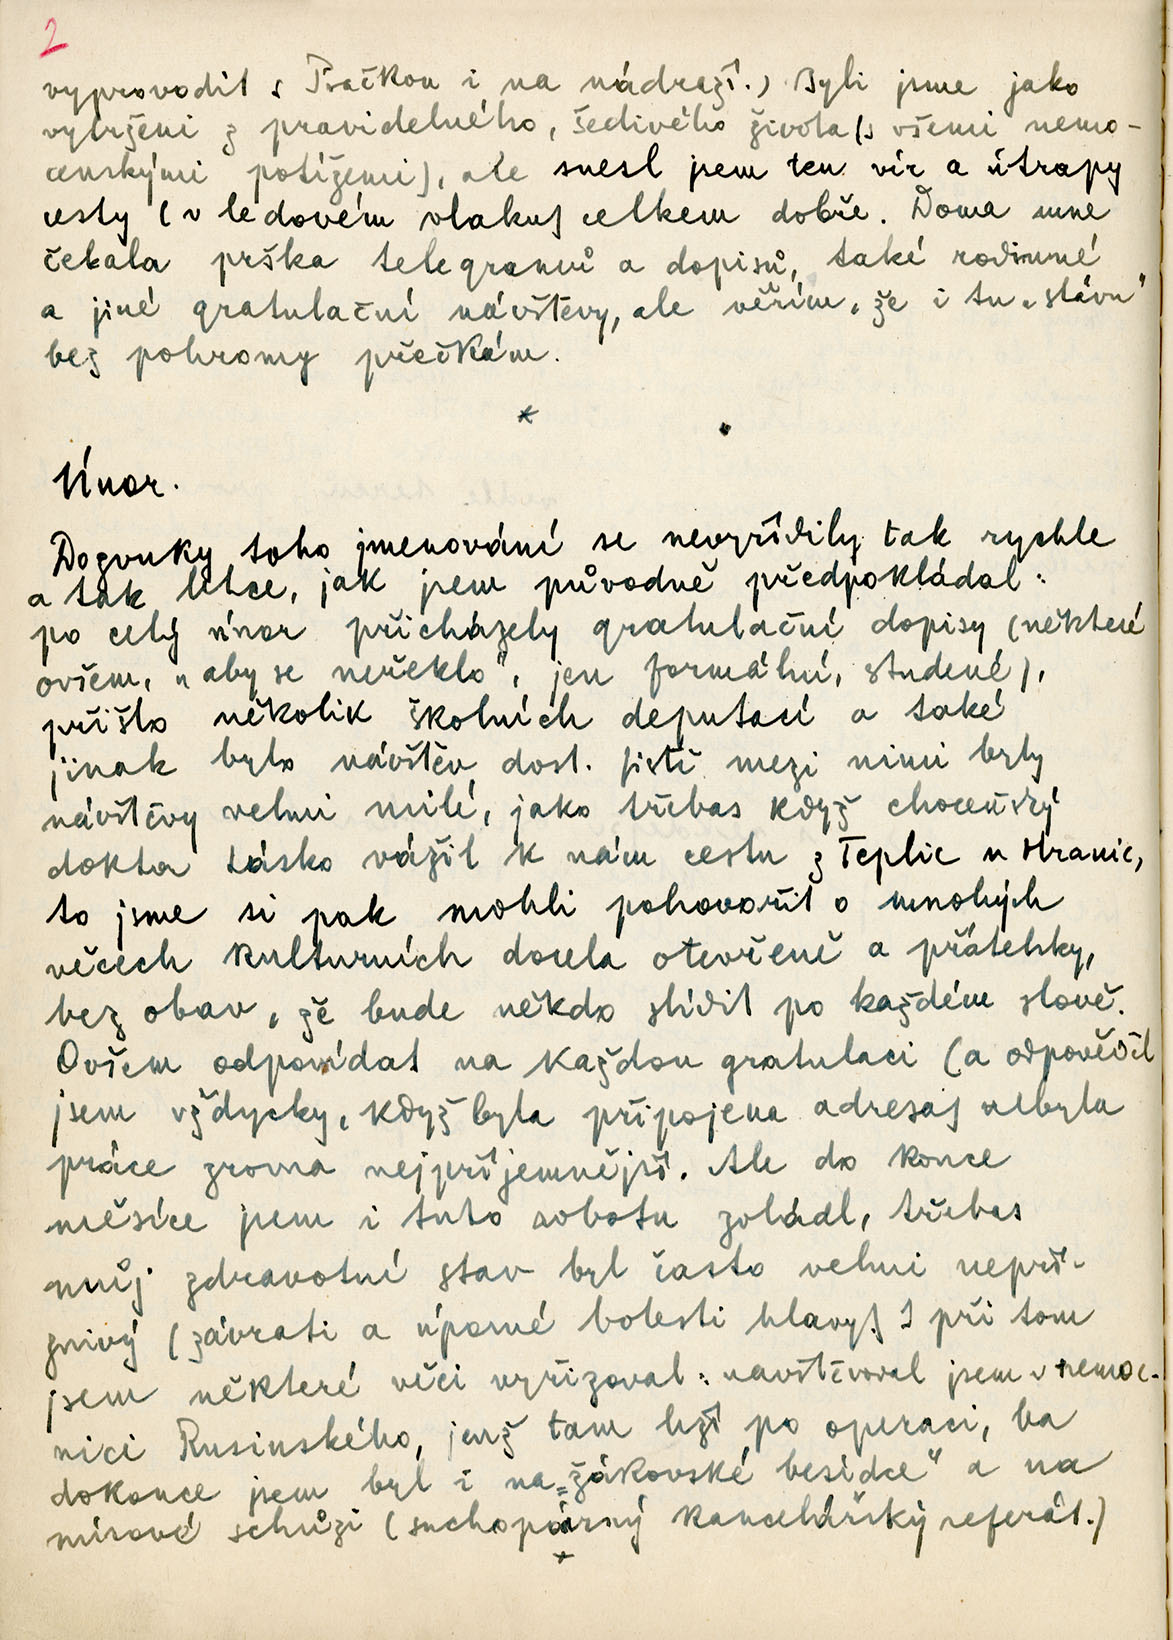 2
vyprovodit s Pračkou i na nádraží.) Byli jsme jako
vytrženi z pravidelného, šedivého života (s všemi nemo-
censkými potížemi), ale snesl jsem ten vír a útrapy
cesty (v ledovém vlaku) celkem dobře. Doma mne
čekala prška telegramů a dopisů, také rodinné
a jiné gratulační návštěvy, ale věřím, že i tu „slávu"
bez pohromy přečkám.
*
Únor.
Dozvuky toho jmenování se nevyřídily tak rychle
a tak lehce, jak jsem původně předpokládal:
po celý únor přicházely gratulační dopisy (některé
ovšem, „aby se neřeklo", jen formální, studené),
přišlo několik školních deputací a také
jinak bylo návštěv dost. Jistě mezi nimi byly
návštěvy velmi milé, jako třebas když choceňský
doktor Lásko vážil k nám cestu z Teplic u Hranic,
to jsme si pak mohli pohovořit o mnohých
věcech kulturních docela otevřeně a přátelsky,
bez obav, že bude někdo slídit po každém slově.
Ovšem odpovídat na každou gratulaci (a odpověděl
jsem vždycky, když byla připojena adresa) nebyla
práce zrovna nejpříjemnější. Ale do konce
měsíce jsem i tuto robotu zvládl, třebas
můj zdravotní stav byl často velmi nepří-
znivý (závrati a úporné bolesti hlavy). I při tom
jsem některé věci vyřizoval: navštěvoval jsem v nemoc-
nici Rusinského, jenž tam leží po operaci, ba
dokonce jsem byl i na „žákovské besídce" a na
mírové schůzi (suchopárný kancelářský referát.)
*